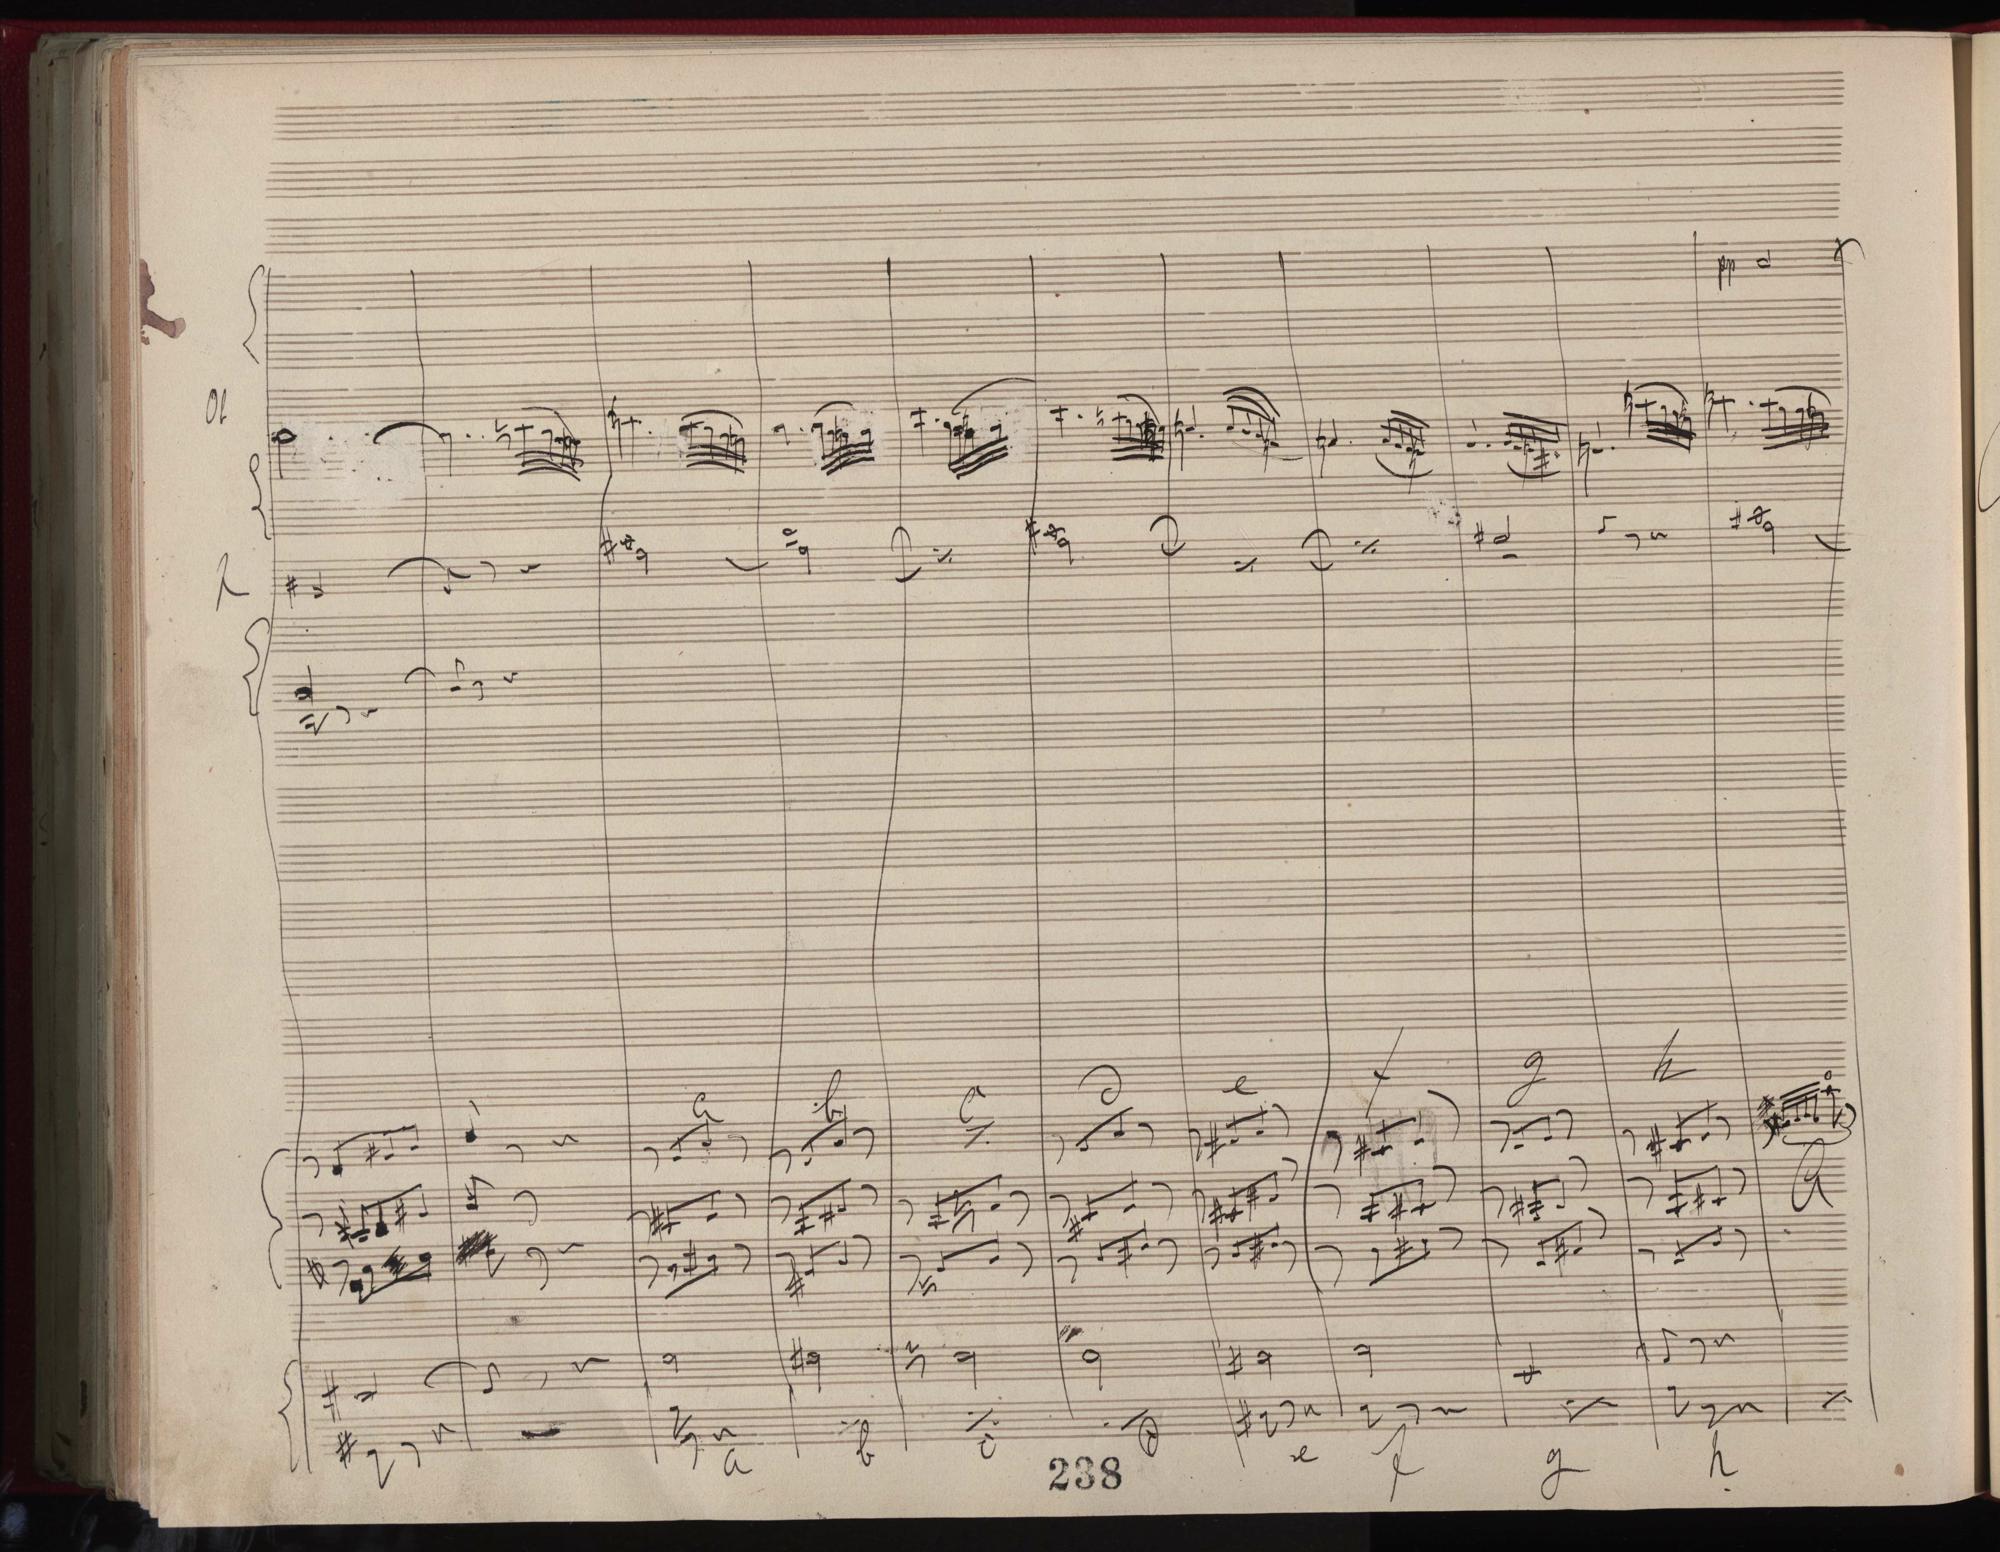 pp
a b c d e f g h
a
a b c d e f g h
238